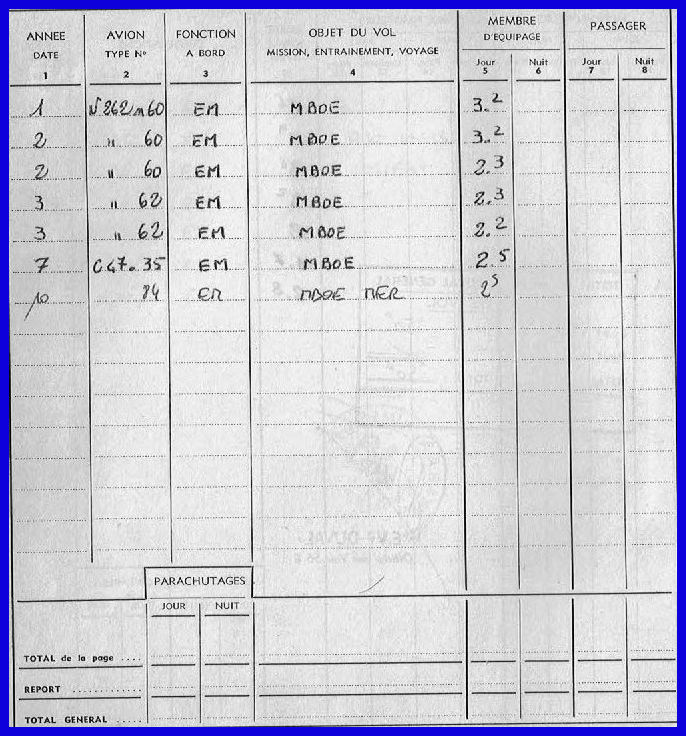 ANNEE AVION FONCTION OBJET DU VOL MEMBRE D'EQUIPAGE PASSAGER
DATE TYPE N° A BORD MISSION, ENTRAINEMENT, VOYAGE Jour Nuit Jour Nuit
1 2 3 4 5 6 7 8
1 N 262 n 60 EM MBOE 3.2
2 " 60 EM MBOE 3.2
2 " 60 EM MBOE 2.3
3 " 62 EM MBOE 2.3
3 " 62 EM MBOE 2.2
7 C47. 35 EM MBOE 2.5
10 84 EM MBOE MER 2 5
PARACHUTAGES
JOUR NUIT
TOTAL de la page ....
REPORT ............
TOTAL GENERAL .....